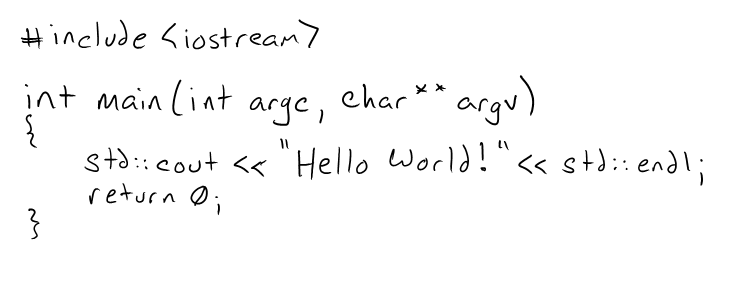 #include <iostream>
int main(int argc, char** argv)
{
std::cout << "Hello World!" << std::endl;
return 0;
}